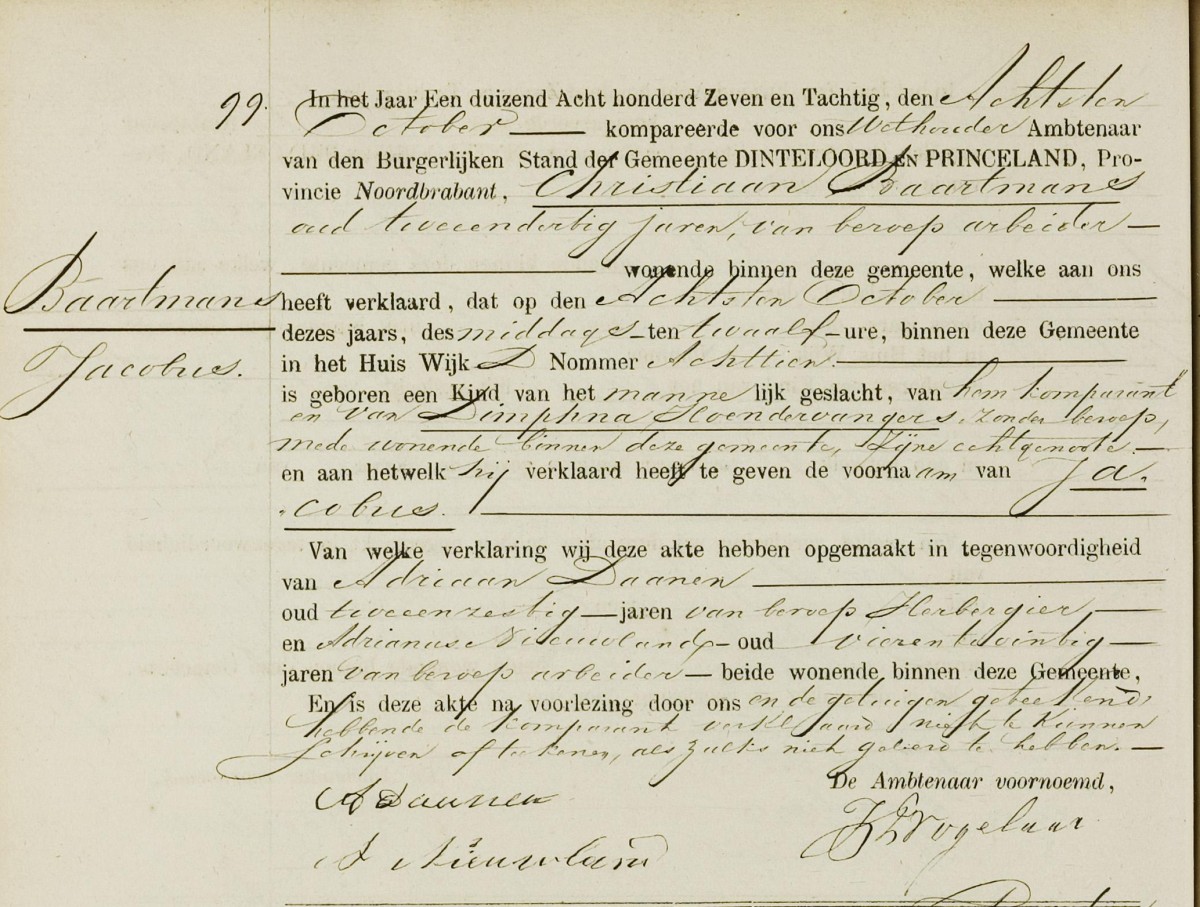 99. In het Jaar Een duizend Acht honderd Zeven en Tachtig, den Achtsten
October — kompareerde voor ons Wethouder Ambtenaar
van den Burgerlijken Stand der Gemeente DINTELOORD EN PRINCELAND, Pro-
vincie Noordbrabant, Christiaan Baartmans
oud tweeendertig jaren, van beroep arbeider —
— wonende binnen deze gemeente, welke aan ons
Baartmans
heeft verklaard, dat op den Achtsten October —
dezes jaars, des middags ten twaalf ure, binnen deze Gemeente
Jacobus.
in het Huis Wijk D Nommer Achttien. —
is geboren een Kind van het mannelijk geslacht, van hem komparant
en van Dimphna Hoendervangers, zonder beroep,
mede wonende binnen deze gemeente, zijne echtgenoote. —
en aan hetwelk hij verklaard heeft te geven de voornaam van Ja-
cobus. —
Van welke verklaring wij deze akte hebben opgemaakt in tegenwoordigheid
van Adriaan Daanen —
oud tweeenzestig — jaren van beroep Herbergier, —
en Adrianus Nieuwland — oud vierentwintig —
jaren van beroep arbeider — beide wonende binnen deze Gemeente,
En is deze akte na voorlezing door ons en de getuigen geteekend,
hebbende de komparant verklaard niet te kunnen
schrijven of teekenen, als zulks niet geleerd te hebben. —
De Ambtenaar voornoemd,
A Daanen
Vogelaar
A Nieuwland